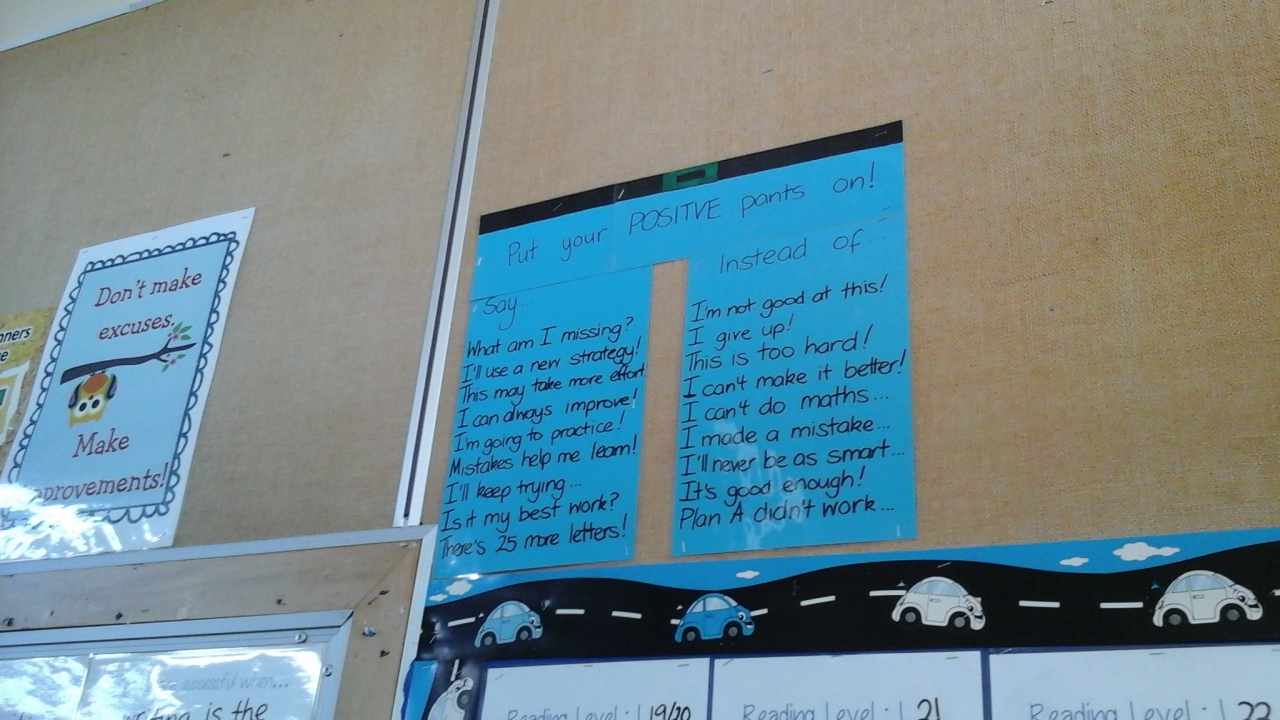 Don't make
excuses.
Make
provements!
nners
Put your POSITVE pants on!
Say...
What am I missing?
I'll use a new strategy!
This may take more effort
I can always improve!
I'm going to practice!
Mistakes help me learn!
I'll keep trying...
Is it my best work?
There's 25 more letters!
Instead of...
I'm not good at this!
I give up!
This is too hard!
I can't make it better!
I can't do maths...
I made a mistake...
I'll never be as smart...
It's good enough!
Plan A didn't work...
successful when...
is the
Reading Level: 19/20
Reading Level: 21
Reading Level: 22